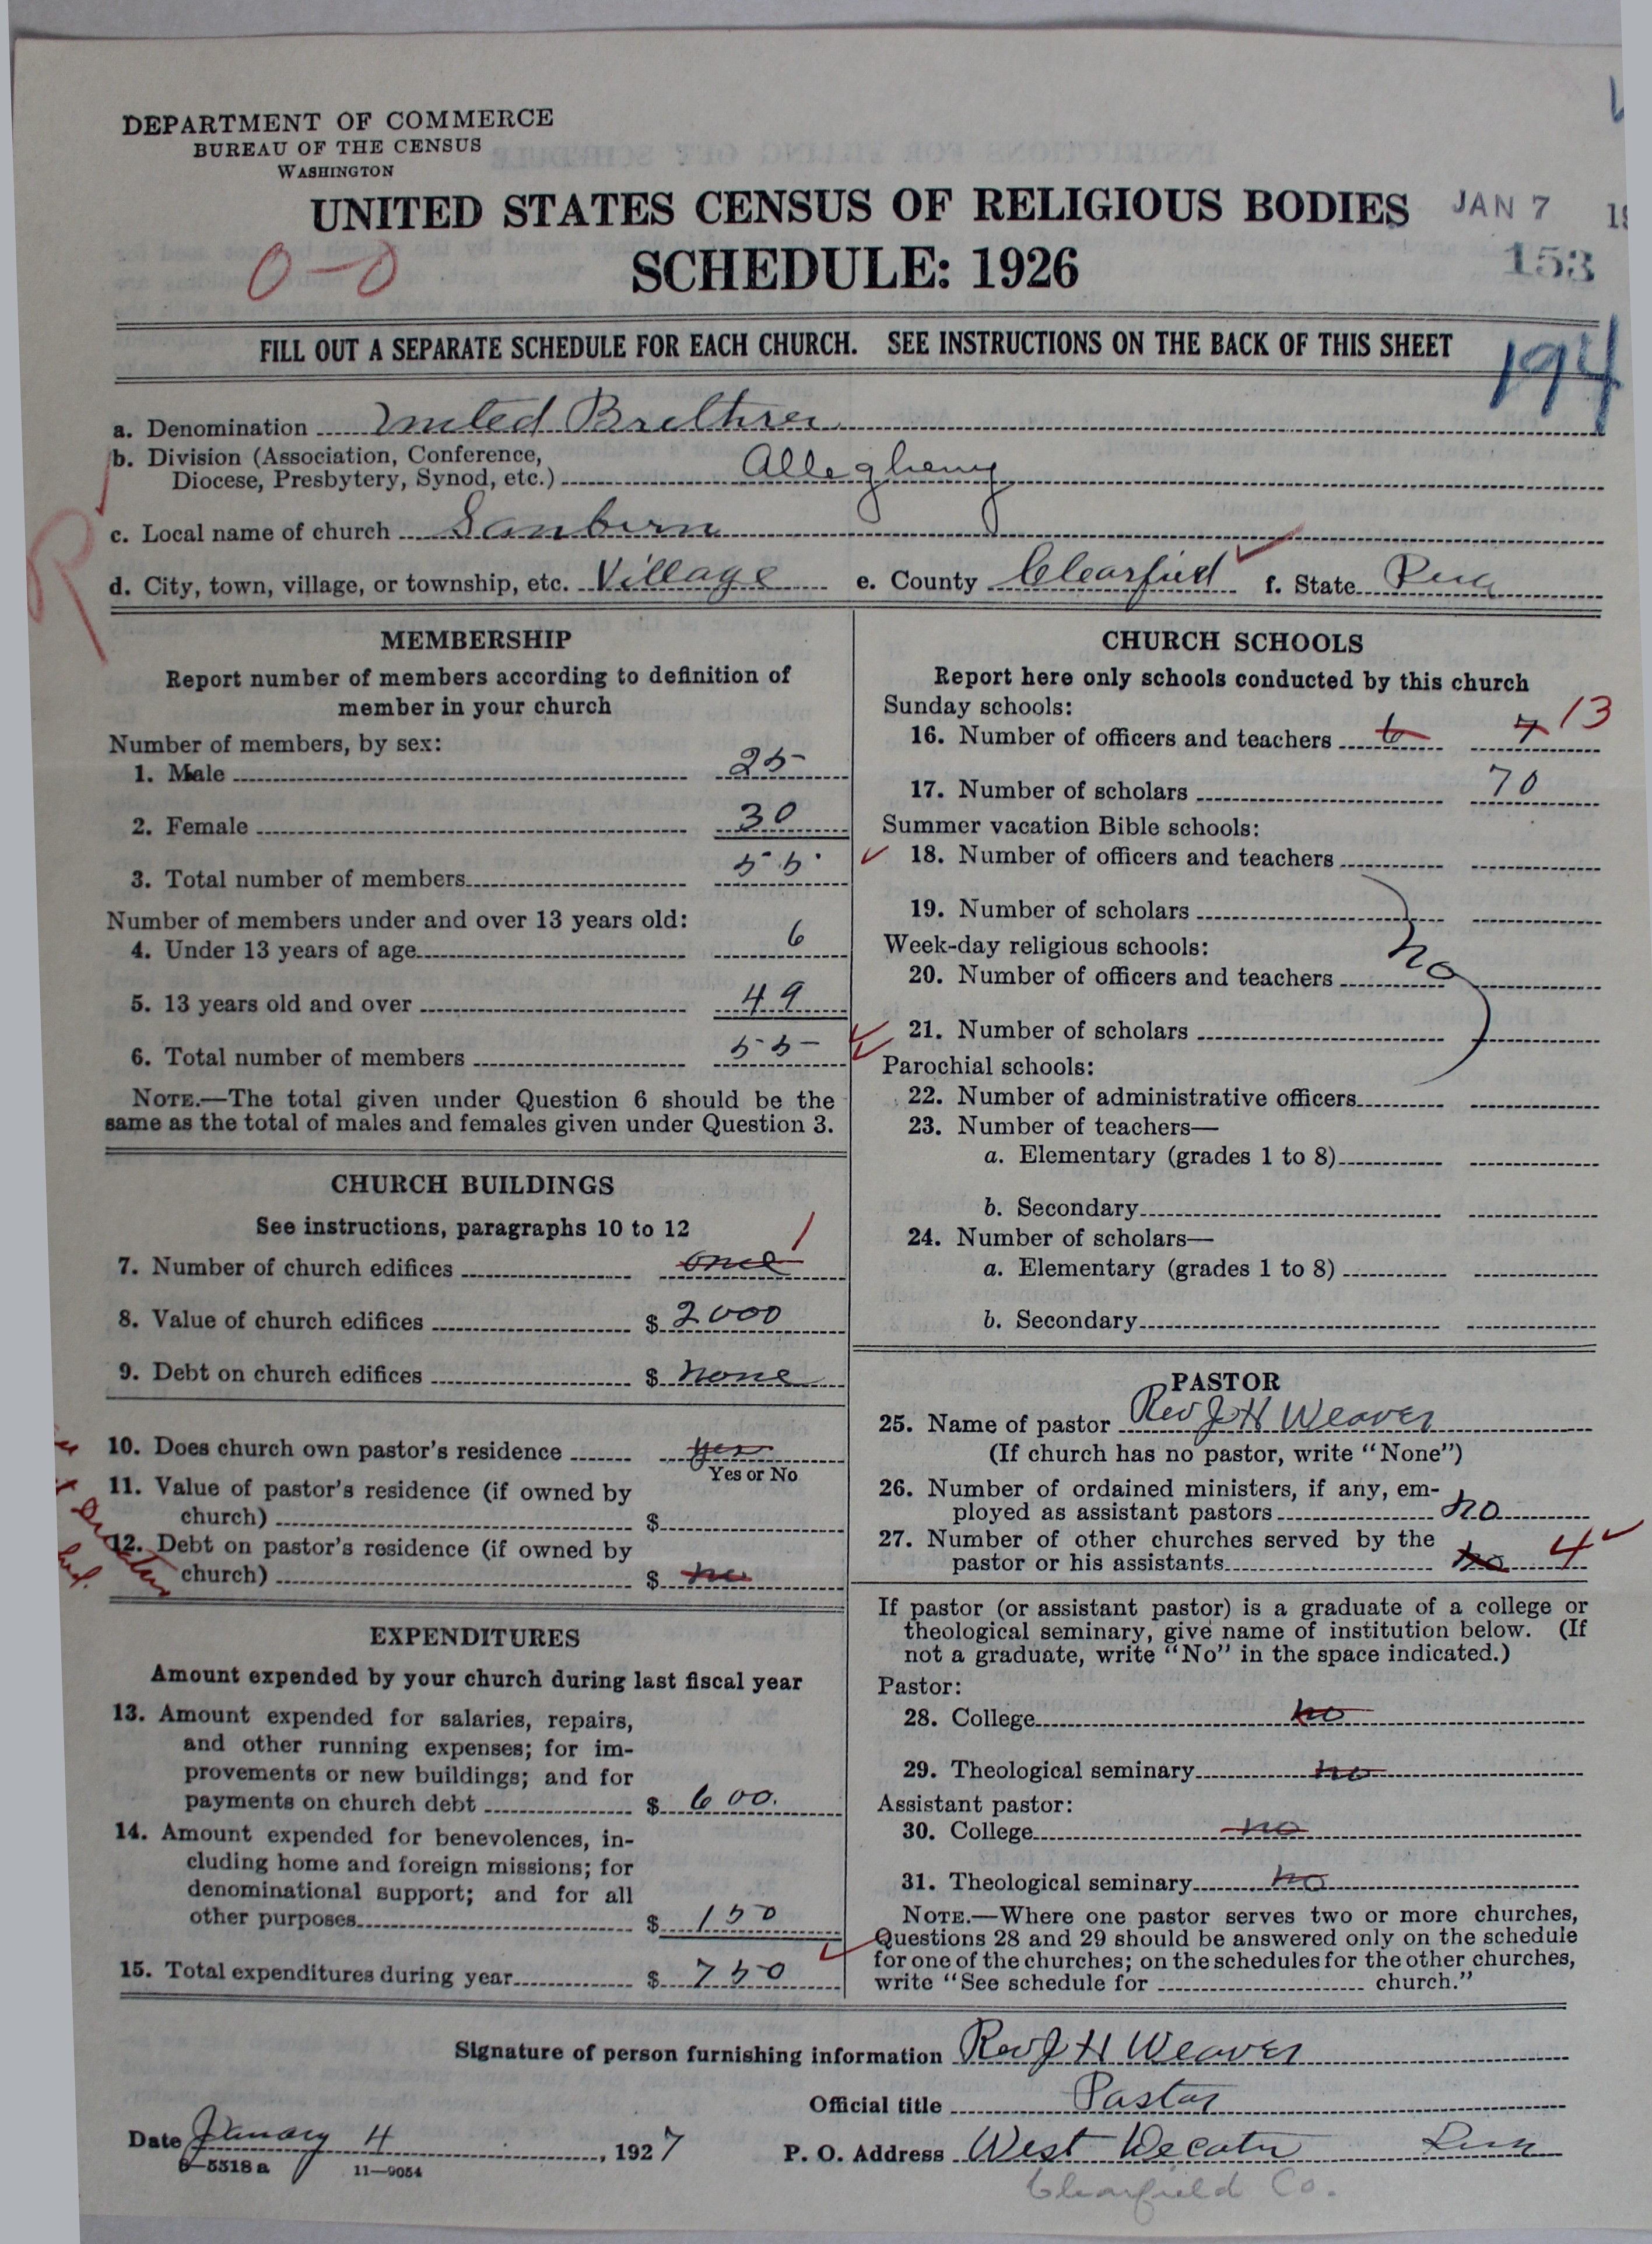 DEPARTMENT OF COMMERCE
BUREAU OF THE CENSUS
WASHINGTON
UNITED STATES CENSUS OF RELIGIOUS BODIES
JAN 7
SCHEDULE: 1926
153
0-0
FILL OUT A SEPARATE SCHEDULE FOR EACH CHURCH. SEE INSTRUCTIONS ON THE BACK OF THIS SHEET
194
a. Denomination United Brethren
b. Division (Association, Conference,
Diocese, Presbytery, Synod, etc.) Allegheny
c. Local name of church Sanburn
R
d. City, town, village, or township, etc. Village e. County Clearfield f. State Penna
MEMBERSHIP
Report number of members according to definition of
member in your church
Number of members, by sex:
1. Male 25
2. Female 30
3. Total number of members 55
Number of members under and over 13 years old:
4. Under 13 years of age 6
5. 13 years old and over 49
6. Total number of members 55
NOTE.—The total given under Question 6 should be the
same as the total of males and females given under Question 3.
CHURCH BUILDINGS
See instructions, paragraphs 10 to 12
7. Number of church edifices one 1
8. Value of church edifices $ 2000
9. Debt on church edifices $ none
10. Does church own pastor's residence yes
Yes or No
11. Value of pastor's residence (if owned by
church) $
12. Debt on pastor's residence (if owned by
church) $ no
EXPENDITURES
Amount expended by your church during last fiscal year
13. Amount expended for salaries, repairs,
and other running expenses; for im-
provements or new buildings; and for
payments on church debt $ 600.
14. Amount expended for benevolences, in-
cluding home and foreign missions; for
denominational support; and for all
other purposes $ 150
15. Total expenditures during year $ 750
CHURCH SCHOOLS
Report here only schools conducted by this church
Sunday schools:
16. Number of officers and teachers 6 7 13
17. Number of scholars 70
Summer vacation Bible schools:
18. Number of officers and teachers
19. Number of scholars
no
Week-day religious schools:
20. Number of officers and teachers
21. Number of scholars
Parochial schools:
22. Number of administrative officers
23. Number of teachers—
a. Elementary (grades 1 to 8)
b. Secondary
24. Number of scholars—
a. Elementary (grades 1 to 8)
b. Secondary
PASTOR
25. Name of pastor Rev J H Weaver
(If church has no pastor, write "None")
26. Number of ordained ministers, if any, em-
ployed as assistant pastors no
27. Number of other churches served by the
pastor or his assistants no 4
If pastor (or assistant pastor) is a graduate of a college or
theological seminary, give name of institution below. (If
not a graduate, write "No" in the space indicated.)
Pastor:
28. College no
29. Theological seminary no
Assistant pastor:
30. College no
31. Theological seminary no
NOTE.—Where one pastor serves two or more churches,
Questions 28 and 29 should be answered only on the schedule
for one of the churches; on the schedules for the other churches,
write "See schedule for church."
Signature of person furnishing information Rev J H Weaver
Official title Pastor
Date January 4, 1927
P. O. Address West Decatur Penn
8—5518 a 11—9054
Clearfield Co.